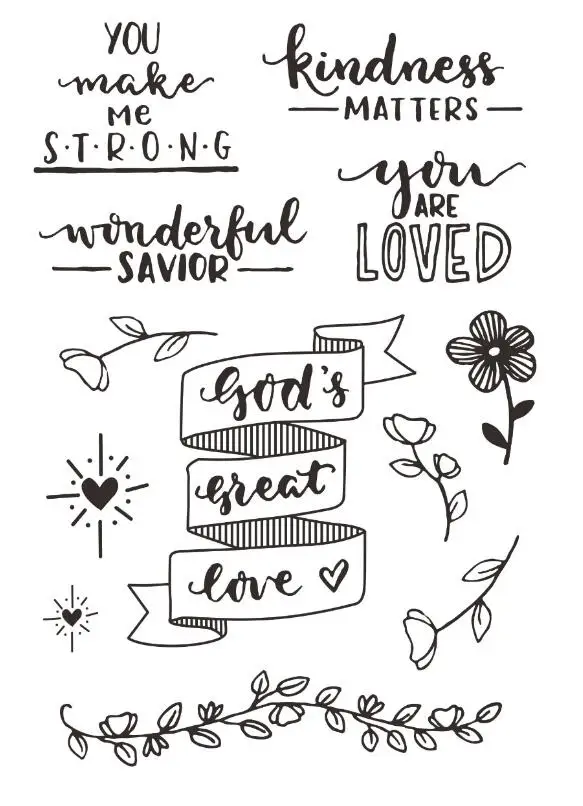 YOU
make
ME
S·T·R·O·N·G
kindness
MATTERS
you
ARE
LOVED
wonderful
SAVIOR
God's
great
love